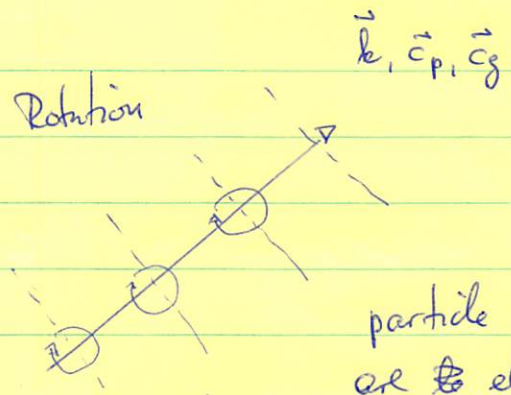 k⃗, c⃗p, c⃗g
Rotation
particle
are